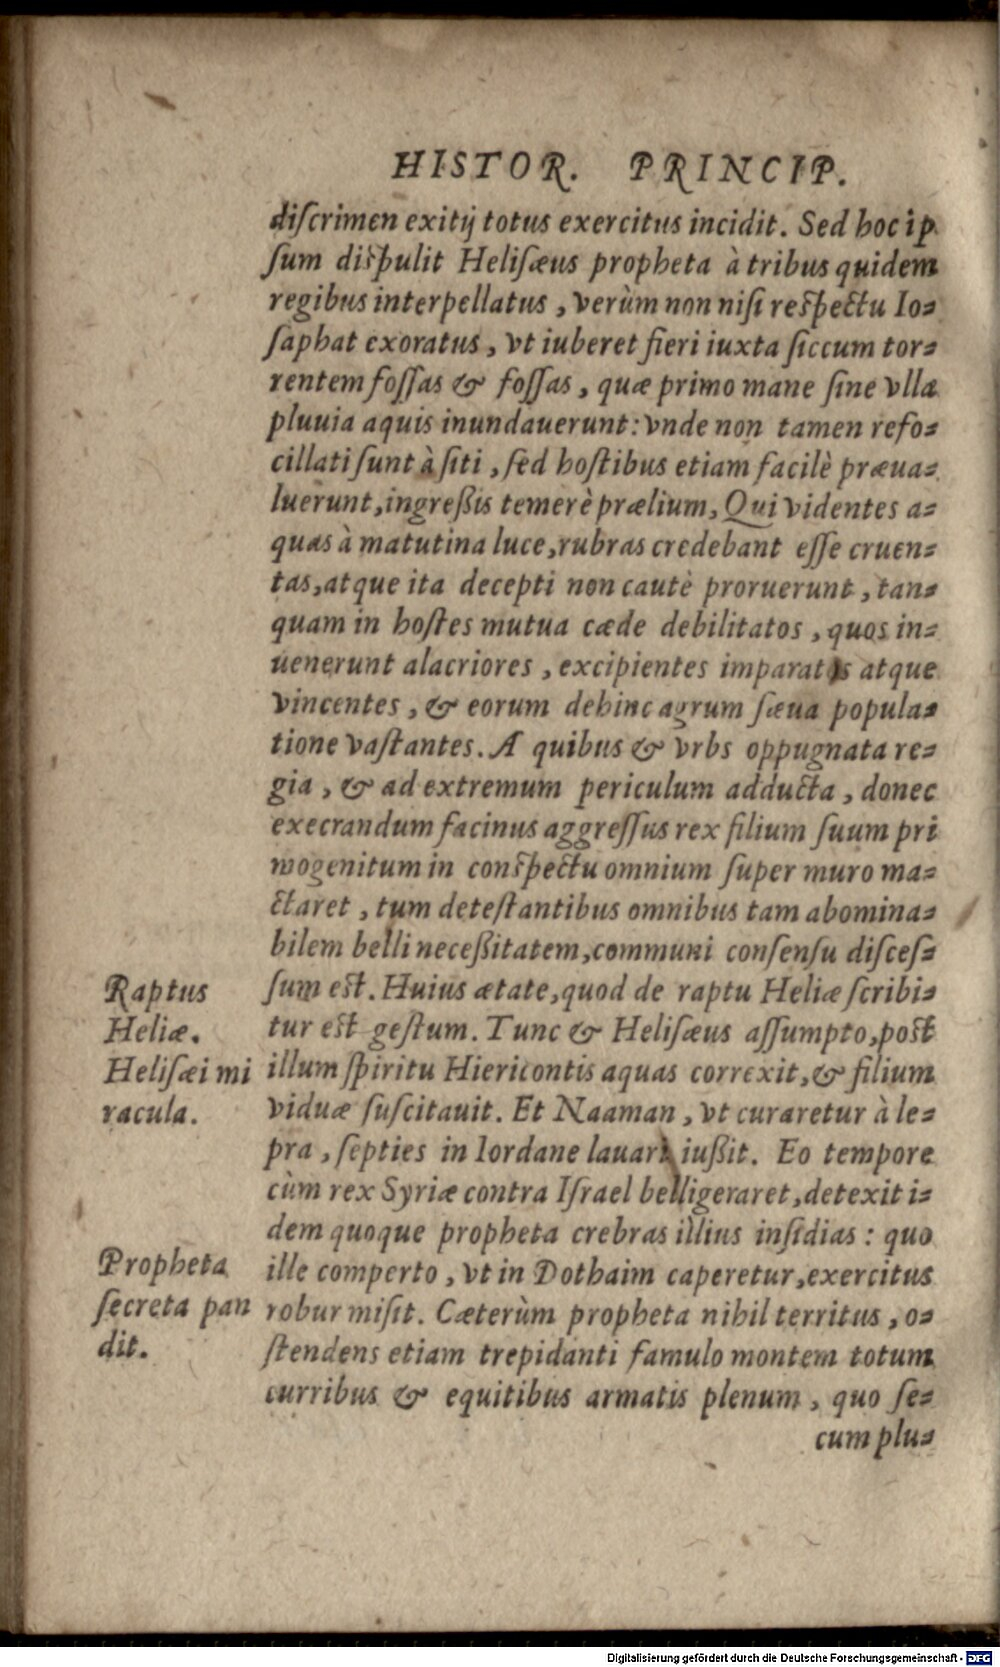 HISTOR. PRINCIP.
diſcrimen exitij totus exercitus incidit. Sed hoc ip
ſum diſpulit Heliſæus propheta à tribus quidem
regibus interpellatus, verùm non niſi reſpectu Io-
ſaphat exoratus, vt iuberet fieri iuxta ſiccum tor-
rentem foſſas & foſſas, quæ primo mane ſine vlla
pluuia aquis inundauerunt: vnde non tamen refo-
cillati ſunt à ſiti, ſed hoſtibus etiam facilè præua-
luerunt, ingreßis temerè prælium, Qui videntes a-
quas à matutina luce, rubras credebant eſſe cruen-
tas, atque ita decepti non cautè proruerunt, tan-
quam in hoſtes mutua cæde debilitatos, quos in-
uenerunt alacriores, excipientes imparatos atque
vincentes, & eorum dehinc agrum ſæua popula-
tione vaſtantes. A quibus & vrbs oppugnata re-
gia, & ad extremum periculum adducta, donec
execrandum facinus aggreſſus rex filium ſuum pri
mogenitum in conſpectu omnium ſuper muro ma-
ctaret, tum deteſtantibus omnibus tam abomina-
bilem belli neceßitatem, communi conſenſu diſceſ-
ſum eſt. Huius ætate, quod de raptu Heliæ ſcribi-
tur eſt geſtum. Tunc & Heliſæus aſſumpto, poſt
illum ſpiritu Hiericontis aquas correxit, & filium
viduæ ſuſcitauit. Et Naaman, vt curaretur à le-
pra, ſepties in Iordane lauari iußit. Eo tempore
cùm rex Syriæ contra Iſrael belligeraret, detexit i-
dem quoque propheta crebras illius inſidias: quo
ille comperto, vt in Dothaim caperetur, exercitus
robur miſit. Cæterùm propheta nihil territus, o-
ſtendens etiam trepidanti famulo montem totum
curribus & equitibus armatis plenum, quo ſe-
cum plu-
Raptus
Heliæ.
Heliſæi mi
racula.
Propheta
ſecreta pan
dit.
Digitalisierung gefördert durch die Deutsche Forschungsgemeinschaft - DFG